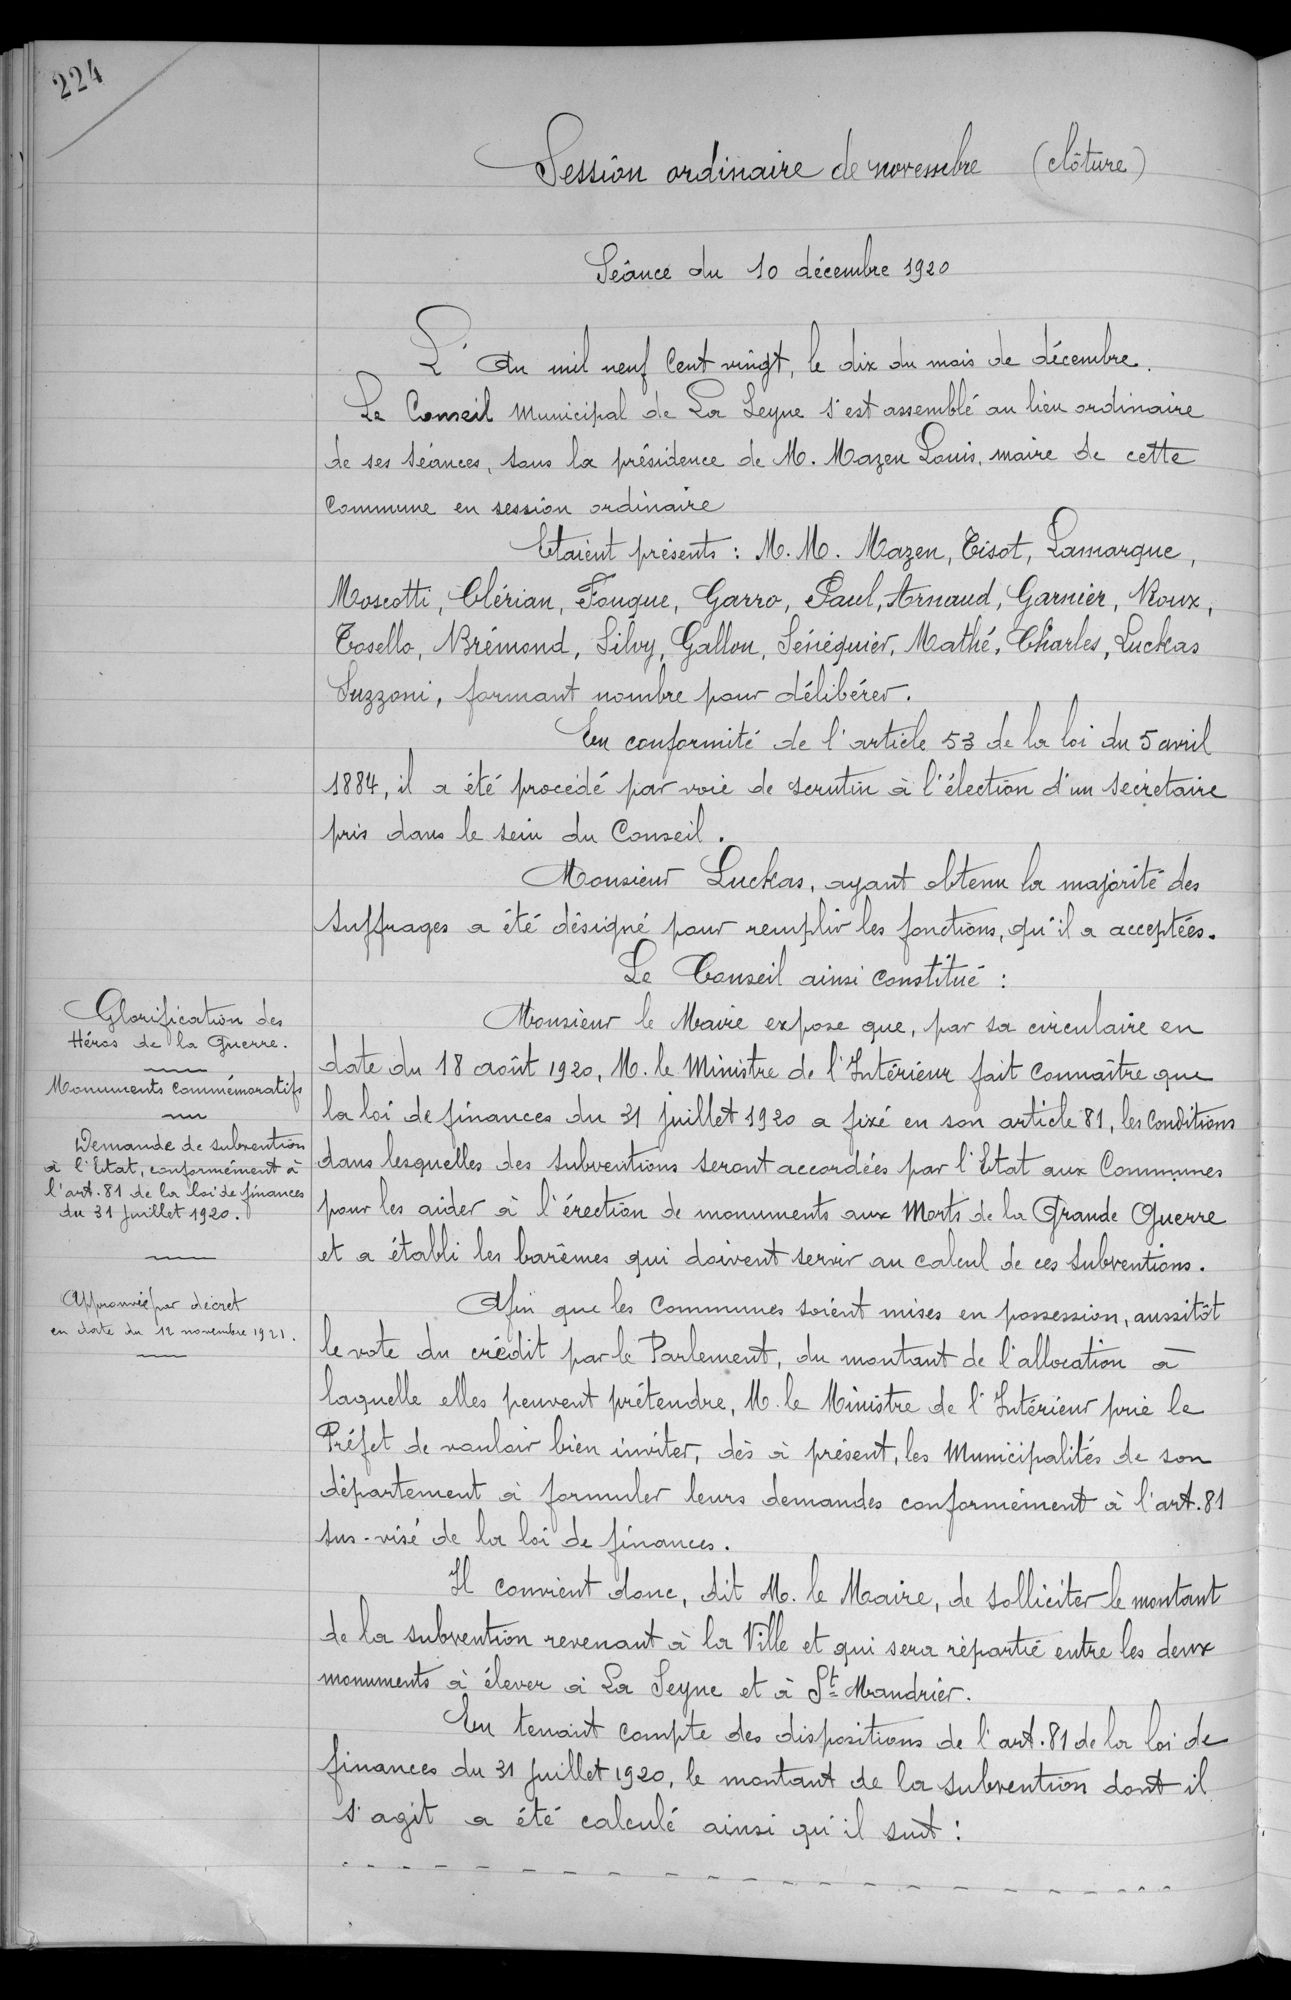 224
Session ordinaire de novembre (clôture)
Séance du 10 décembre 1920
L'An mil neuf Cent vingt, le dix du mois de décembre.
Le Conseil Municipal de La Seyne s'est assemblé au lieu ordinaire
de ses séances, sous la présidence de M. Mazen Louis, maire de cette
Commune en session ordinaire
Etaient présents : M.M. Mazen, Tisot, Lamarque,
Moscotti, Clérian, Fouque, Garro, Paul, Arnaud, Garnier, Roux,
Tosello, Brémond, Silvy, Gallon, Sénéquier, Mathé, Charles, Luckas
Suzzoni, formant nombre pour délibérer.
En conformité de l'article 53 de la loi du 5 avril
1884, il a été procédé par voie de scrutin à l'élection d'un secrétaire
pris dans le sein du Conseil.
Monsieur Luckas, ayant obtenu la majorité des
suffrages a été désigné pour remplir les fonctions, qu'il a acceptées.
Le Conseil ainsi constitué :
Glorification des
Héros de la Guerre.
Monuments commémoratifs
Demande de subvention
à l'Etat, conformément à
l'art. 81 de la loi de finances
du 31 Juillet 1920.
Approuvée par décret
en date du 12 novembre 1921.
Monsieur le Maire expose que, par sa circulaire en
date du 18 août 1920, M. le Ministre de l'Intérieur fait connaître que
la loi de finances du 31 juillet 1920 a fixé en son article 81, les Conditions
dans lesquelles des subventions seront accordées par l'Etat aux Communes
pour les aider à l'érection de monuments aux Morts de la Grande Guerre
et a établi les barêmes qui doivent servir au calcul de ces subventions.
Afin que les Communes soient mises en possession, aussitôt
le vote du crédit par le Parlement, du montant de l'allocation à
laquelle elles peuvent prétendre, M. le Ministre de l'Intérieur prie le
Préfet de vouloir bien inviter, dès à présent, les Municipalités de son
département à formuler leurs demandes conformément à l'art. 81
sus-visé de la loi de finances.
Il convient donc, dit M. le Maire, de solliciter le montant
de la subvention revenant à la Ville et qui sera répartie entre les deux
monuments à élever à La Seyne et à St Mandrier.
En tenant compte des dispositions de l'art. 81 de la loi de
finances du 31 Juillet 1920, le montant de la subvention dont il
s'agit a été calculé ainsi qu'il suit :